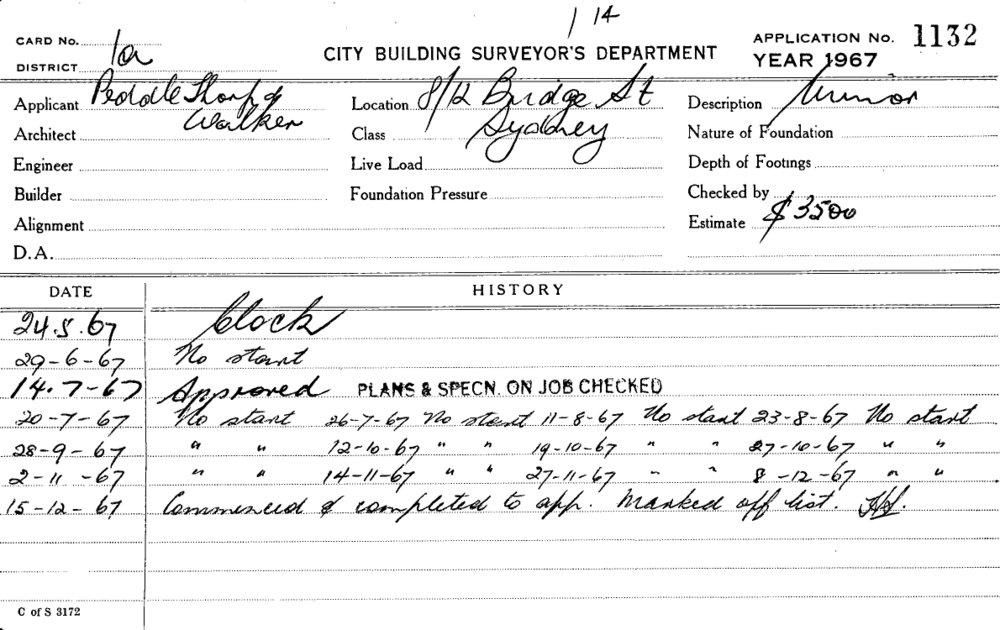 1 14
CARD No. 1a CITY BUILDING SURVEYOR'S DEPARTMENT APPLICATION No. 1132
DISTRICT YEAR 1967
Applicant Peddle Thorp & Location 8/12 Bridge St Description Minor
Architect Walker Class Sydney Nature of Foundation
Engineer Live Load Depth of Footings
Builder Foundation Pressure Checked by
Alignment Estimate $3500
D.A.
DATE HISTORY
24.5.67 Clock
29-6-67 No start
14.7-67 Approved PLANS & SPECN. ON JOB CHECKED
20-7-67 No start 26-7-67 No start 11-8-67 No start 23-8-67 No start
28-9-67 " " 12-10-67 " " 19-10-67 " " 27-10-67 " "
2-11-67 " " 14-11-67 " " 27-11-67 " " 8-12-67 " "
15-12-67 Commenced & completed to app. Marked off list.
C of S 3172